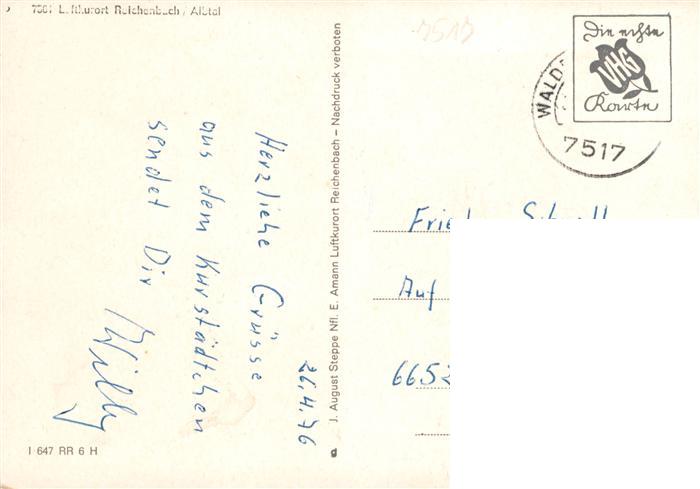 7501 Luftkurort Reichenbach / Albtal
26.4.76
Herzliche Grüsse
aus dem Kurstädtchen
sendet Dir
Willy
I 647 RR 6 H
J. August Steppe Nfl. E. Amann Luftkurort Reichenbach – Nachdruck verboten
7517
Die echte
VHG
Karte
WALD
7517
Auf
6652